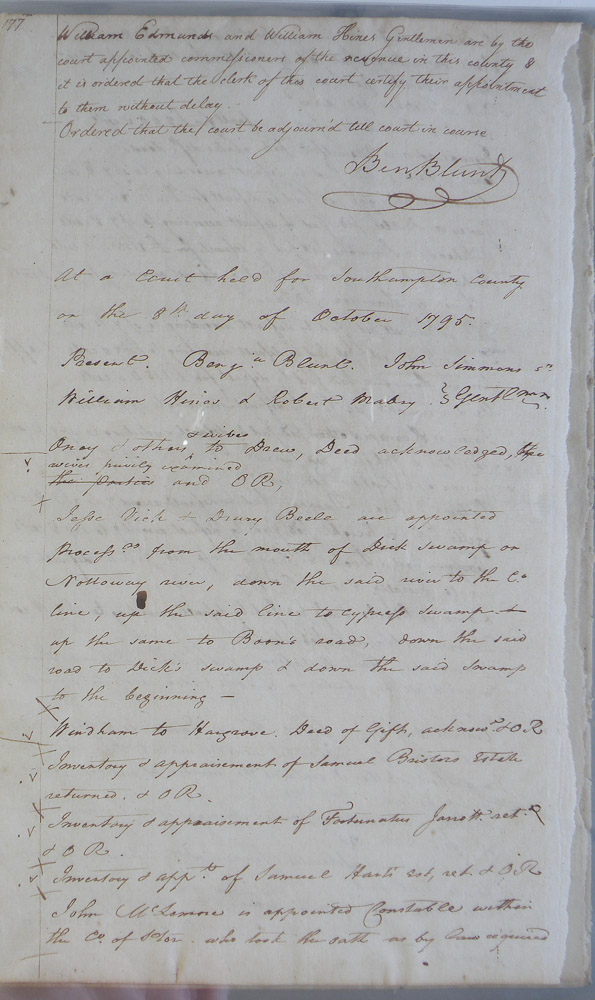 177
William Edmunds and William Hines Gentlemen are by the
court appointed commissioners of the revenue in this county &
it is ordered that the clerk of this court certify their appointment
to them without delay.
Ordered that the court be adjourn'd till court in course.
Ben Blunt
At a Court held for Southampton County
on the 8th day of October 1795.
Present. Benja Blunt. John Simmons
William Hines & Robert Mabry. Gentlmen
& wives
& others to Drew, Deed acknowledged, the
wives privily examined
the parties and OR,
Jesse Vick & Drury Beele are appointed
Process from the mouth of Dick swamp on
Nottoway river, down the said river to the Co
line, up the said line to Cypress swamp &
up the same to Boon's road, down the said
road to Dick's swamp & down the said swamp
to the beginning —
Windham to Hargrove. Deed of Gift, acknowd & OR
Inventory & appraisement of Samuel Bristors Estate
returned. & OR.
Inventory & appraisement of Fortunatus Jarrott. ret.
& OR.
Inventory & appt of Samuel Harts Est, ret. & OR
John McLemore is appointed Constable within
the Co. of So'ton. who took the oath as by law required